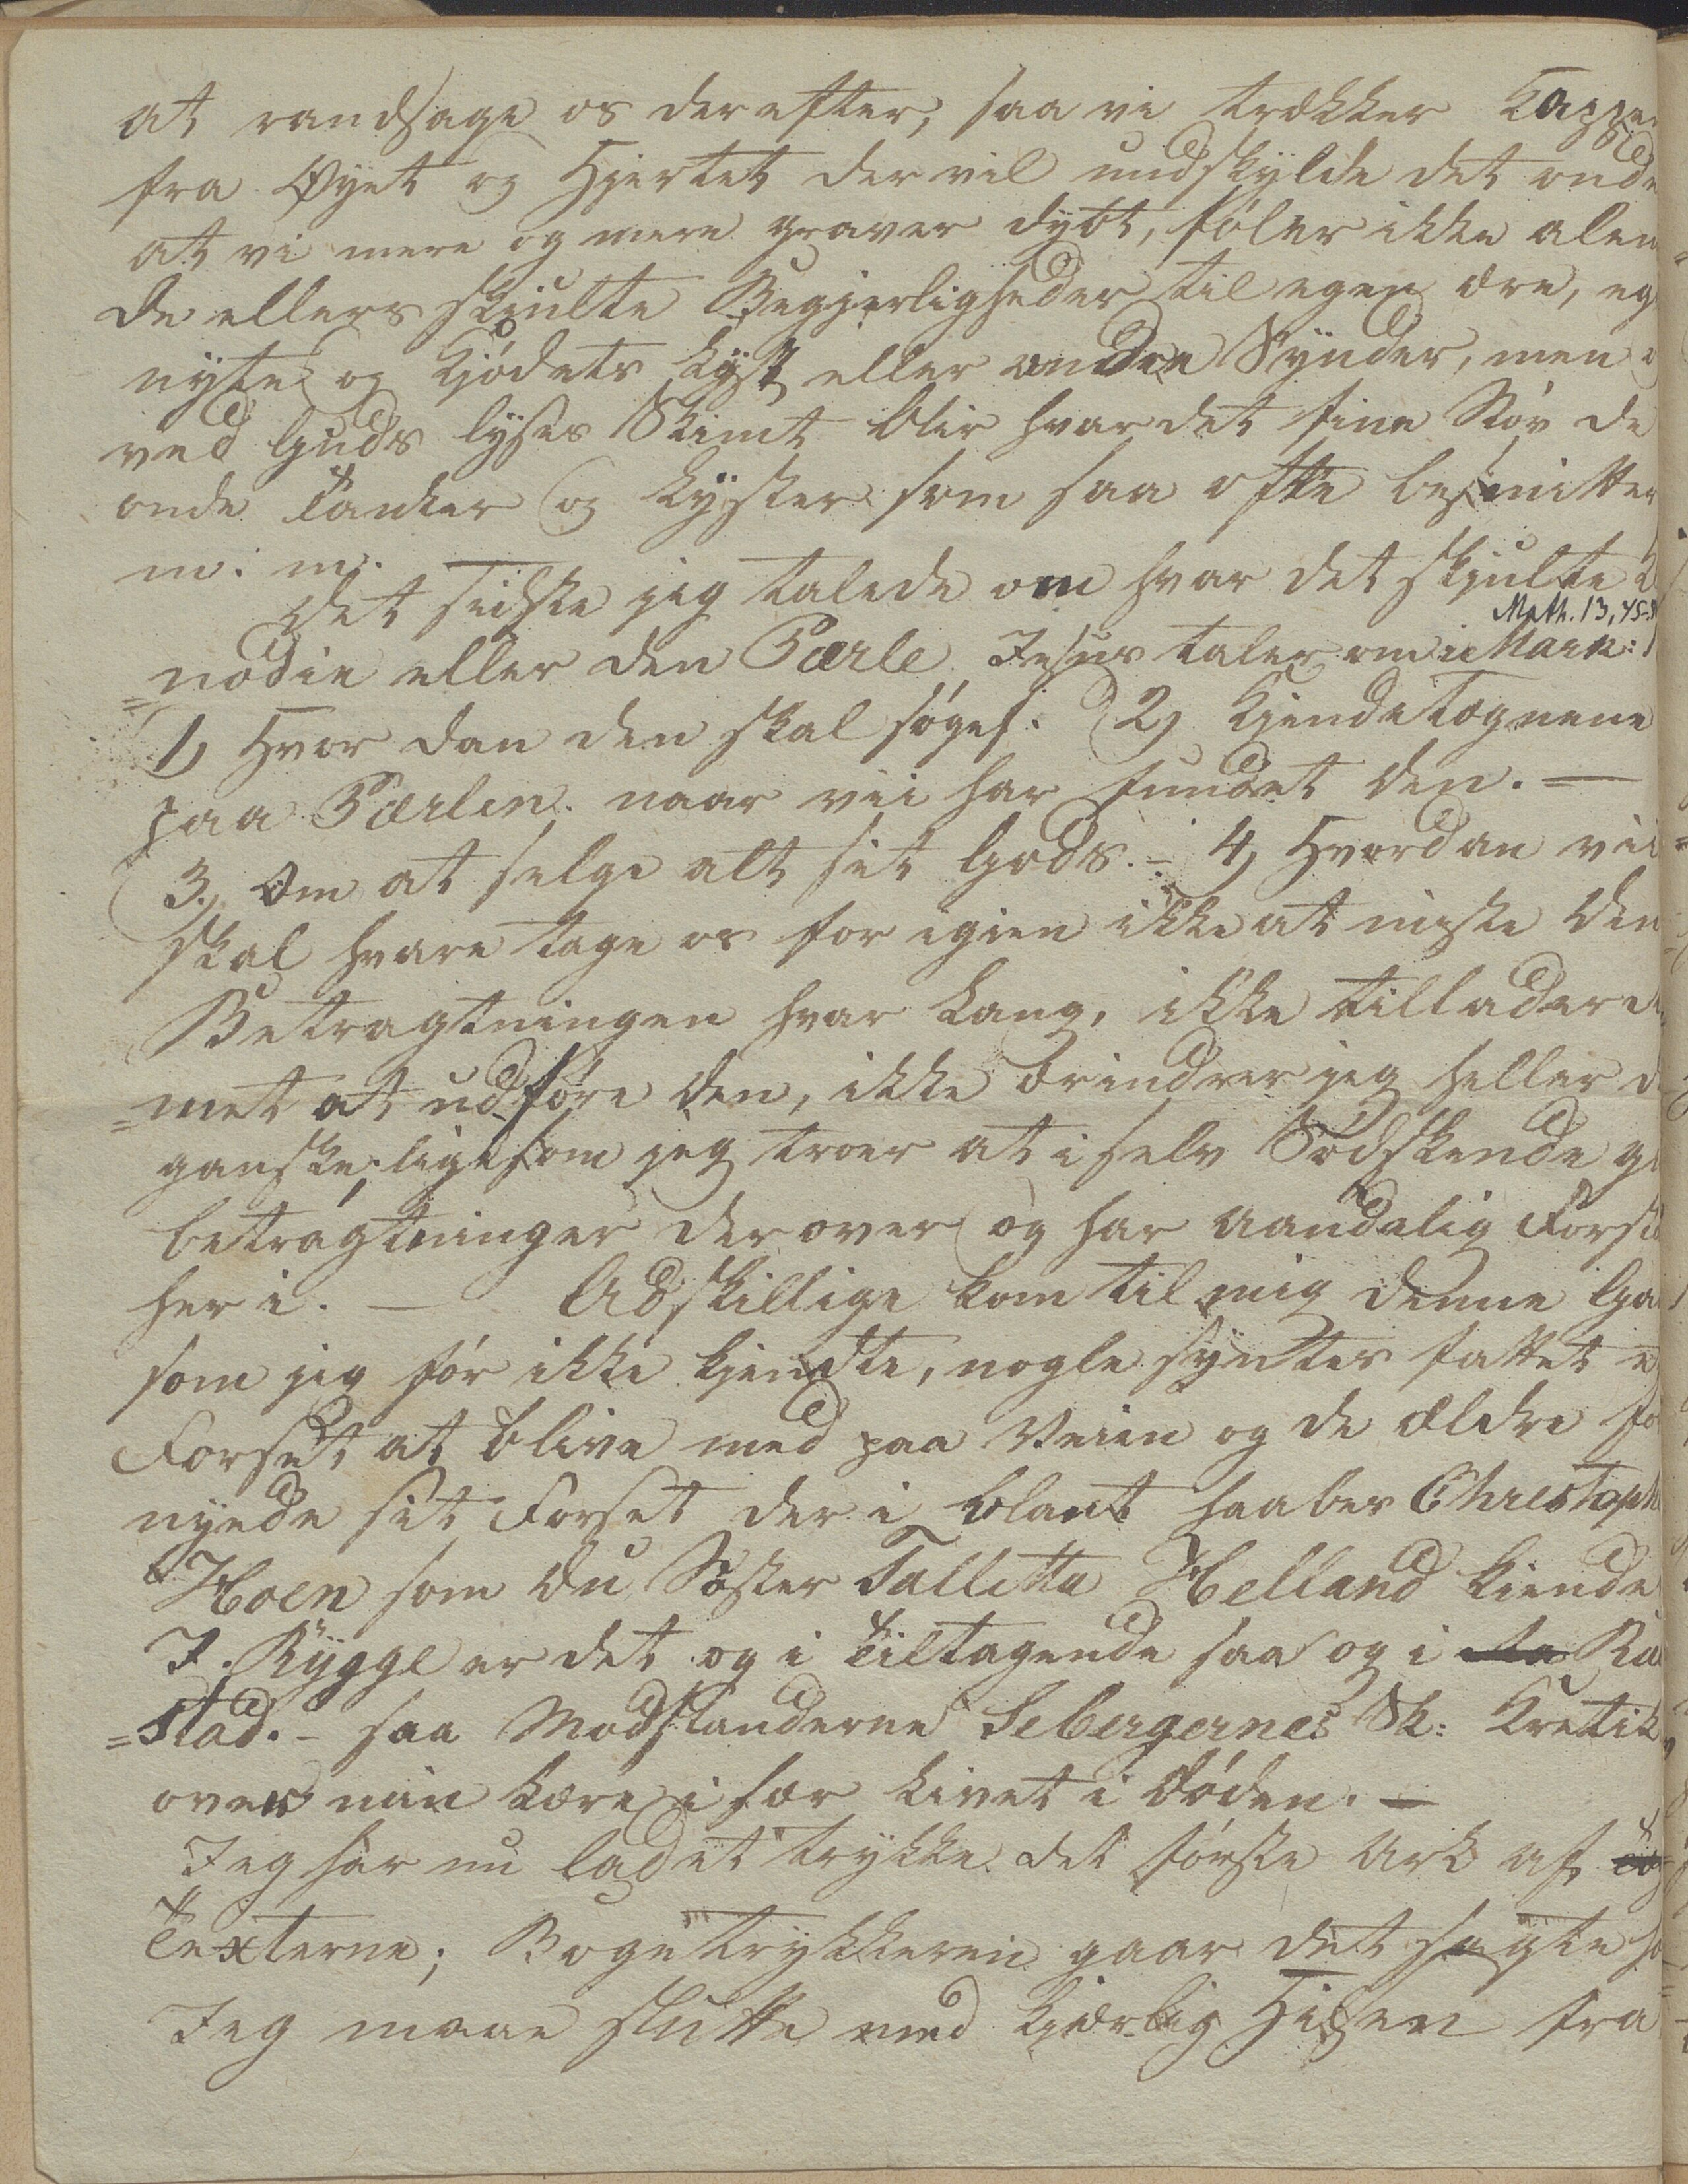 at randsage os derefter, saa vi trækker Kappe
fra Øyet og Hjertet der vil undskylde det onde
at vi mere og mere graver dybt, føler ikke alen
de ellers skiulte Begjerligheder til egen ære, eg
nyte og Kjødets Lyst eller andre Synder, men
ved Guds lyses Skimt blir hvar det fine Støv de
onde Tanker og Lyster som saa ofte besmitter
m: m.
Det sidste jeg talede om hvar det skjulte
Math. 13, 45-
=nodie eller den Pærle Jesus taler om i Mark:
1, Hvor dan den skal søges. 2, Kjendetegnene
paa Pærlen. naar vii har fundet den. —
3, Om at selge alt sit Gods. - 4, Hvordan vii
skal hvare tage os for igien ikke at miste den
Betragtningen hvar Lang, ikke tillader
=met at udføre den, ikke erindrer jeg heller
ganske; ligesom jeg troer at i selv Sødskende
betragtninger derover og har aandelig
her i. — Adskillige kom til mig denne
som jeg før ikke kjendte, nogle syntes fattet
Forset at blive med paa Veien og de ældre
nyede sit Forset der i blant haabes Christoph
Hoen som du Søster Tallitta Helland kiende
I. Rygge er det og i tiltagende saa og i
=stad. - saa Modstanderne Sebergernes Sk: Kretik
over min Lære i sær Livet i Døden. —
Jeg har nu ladet trykke det første Ark af
Texterne; Bogetrykkeren gaar det sagte
Jeg maae slutte med kjærlig Hilsen fra